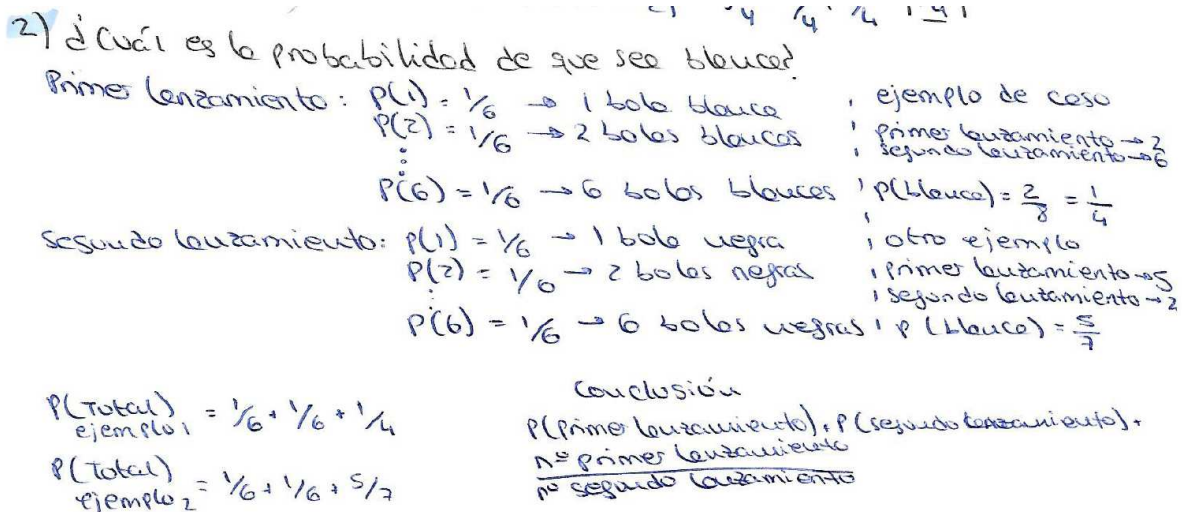 2) ¿Cuál es la probabilidad de que sea blanca?
Primer lanzamiento: P(1) = 1/6 → 1 bola blanca
P(2) = 1/6 → 2 bolas blancas
⋮
P(6) = 1/6 → 6 bolas blancas
Segundo lanzamiento: P(1) = 1/6 → 1 bola negra
P(2) = 1/6 → 2 bolas negras
⋮
P(6) = 1/6 → 6 bolas negras
ejemplo de caso
primer lanzamiento → 2
segundo lanzamiento → 6
P(blanca) = 2/8 = 1/4
otro ejemplo
primer lanzamiento → 5
segundo lanzamiento → 2
P(blanca) = 5/7
P(Total) ejemplo1 = 1/6 + 1/6 + 1/4
P(Total) ejemplo2 = 1/6 + 1/6 + 5/7
Conclusión
P(primer lanzamiento) + P(segundo lanzamiento) +
nº primer lanzamiento
nº segundo lanzamiento